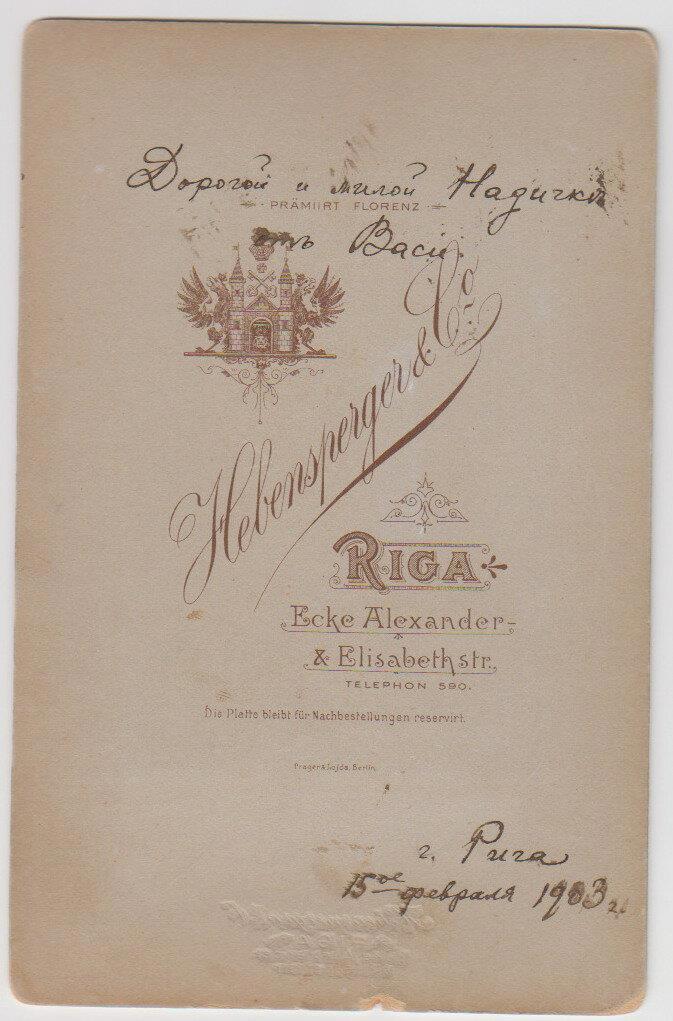 Дорогой и милой Надичкѣ
PRÄMIIRT FLORENZ
отъ Васи.
Hebensperger & Co
RIGA
Ecke Alexander-
& Elisabethstr.
TELEPHON 590.
Die Platte bleibt für Nachbestellungen reservirt.
Prager & Lojda, Berlin.
г. Рига
15ое февраля 1903 г.